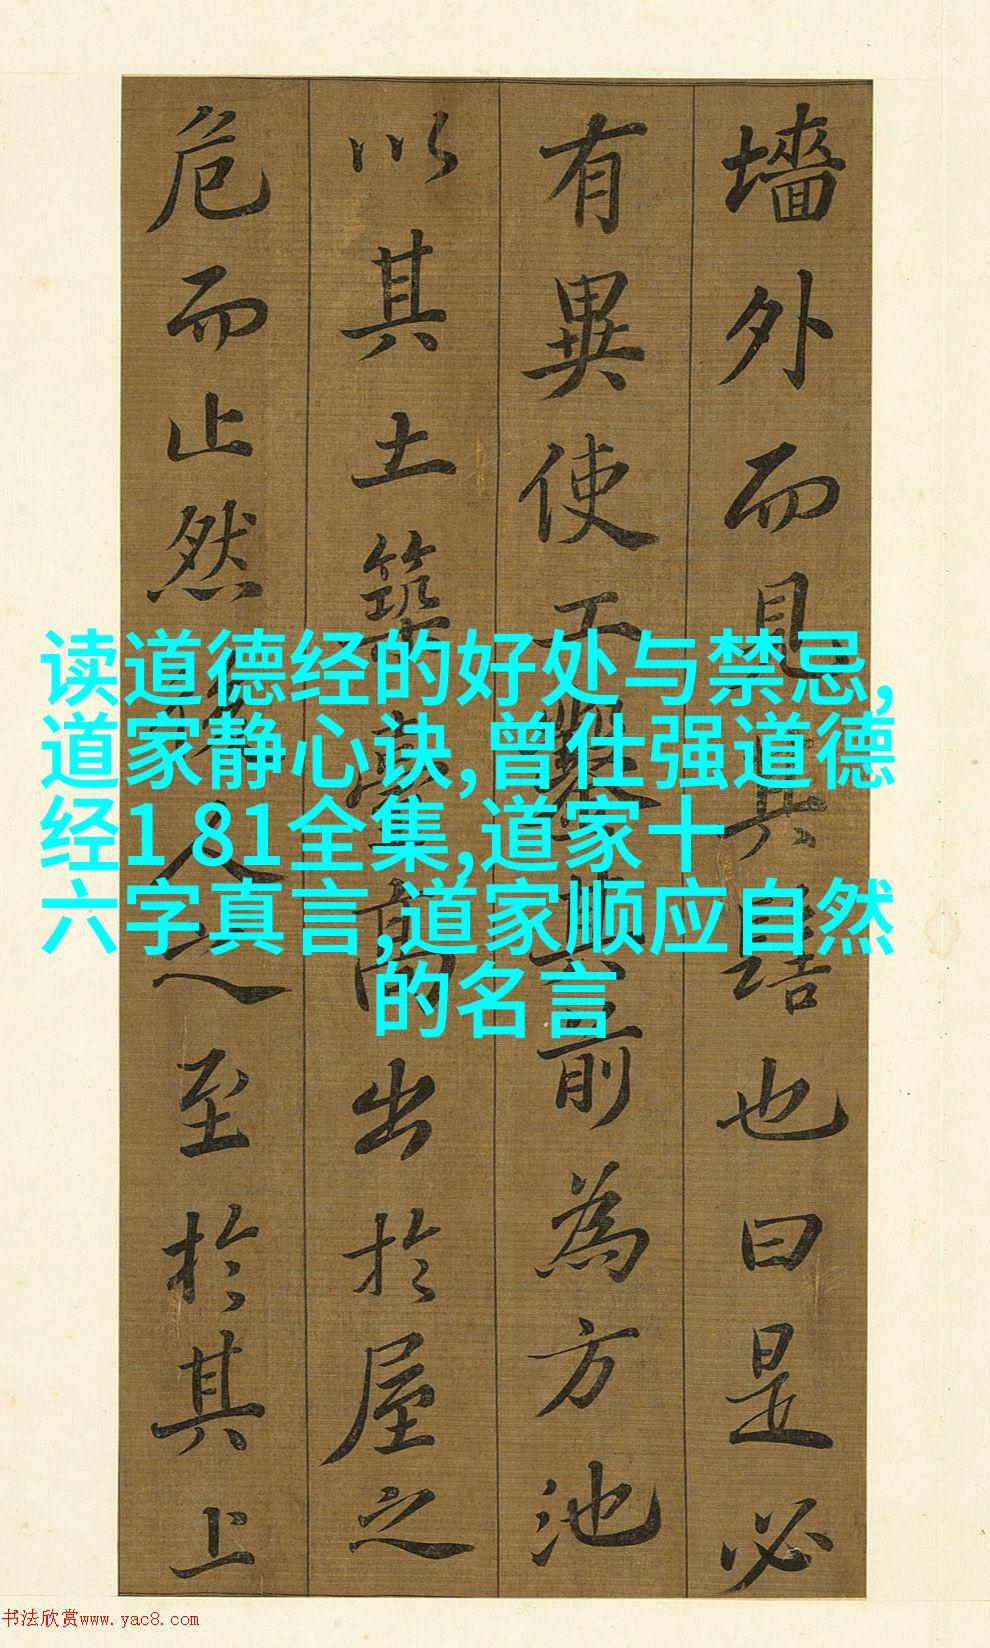 墻外而見其髻也曰是必
有異使工鑿其前為方池
以其土築臺高出於屋之
危而止然後人之至於其上
读道德经的好处与禁忌,
道家静心诀,曾仕强道德
经1 81全集,道家十
六字真言,道家顺应自然
的名言
书法欣赏www.yac8.com